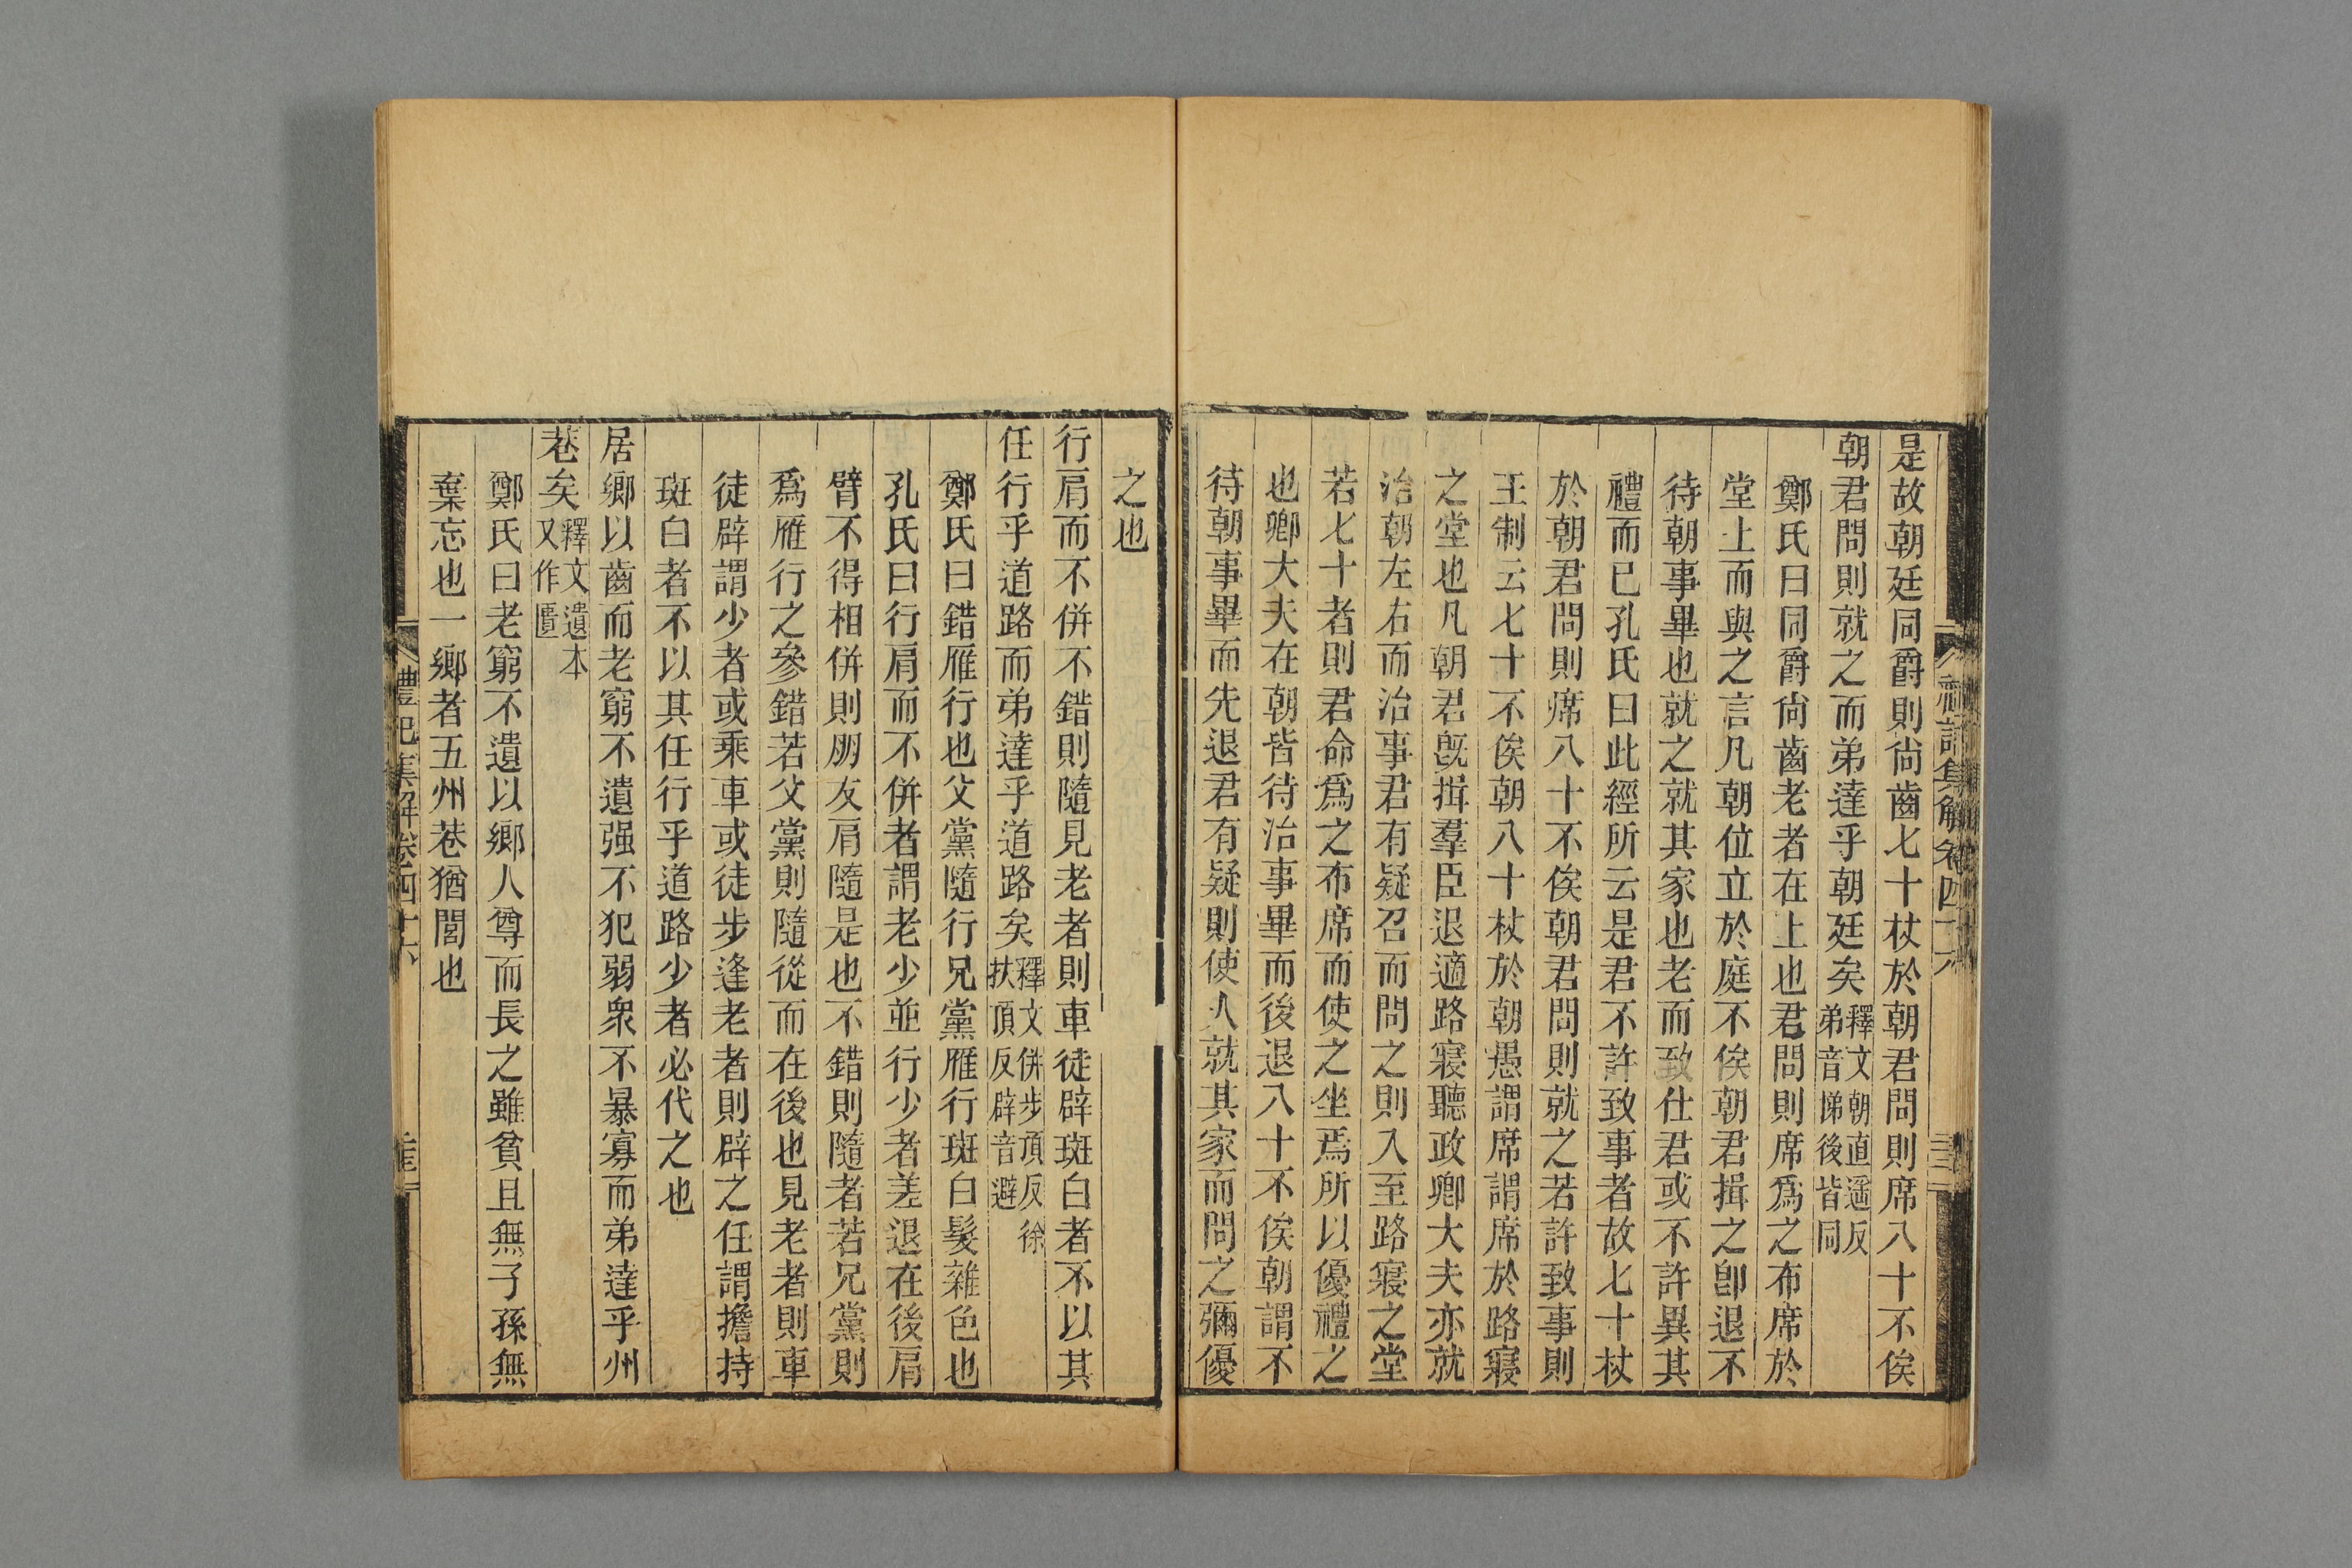 是故朝廷同爵則尙齒七十杖於朝君問則席八十不俟
朝君問則就之而弟達乎朝廷矣釋文朝直遥反弟音悌後皆同
鄭氏曰同爵尙齒老者在上也君問則席爲之布席於
堂上而與之言凡朝位立於庭不俟朝君揖之卽退不
待朝事畢也就之就其家也老而致仕君或不許異其
禮而已孔氏曰此經所云是君不許致事者故七十杖
於朝君問則席八十不俟朝君問則就之若許致事則
王制云七十不俟朝八十杖於朝愚謂席謂席於路寢
之堂也凡朝君旣揖羣臣退適路寢聽政卿大夫亦就
治朝左右而治事君有疑召而問之則入至路寢之堂
若七十者則君命爲之布席而使之坐焉所以優禮之
也卿大夫在朝皆待治事畢而後退八十不俟朝謂不
待朝事畢而先退君有疑則使人就其家而問之彌優
之也
行肩而不併不錯則隨見老者則車徒辟斑白者不以其
任行乎道路而弟達乎道路矣釋文併步頂反徐扶頂反辟音避
鄭氏曰錯雁行也父黨隨行兄黨雁行斑白髮雜色也
孔氏曰行肩而不併者謂老少並行少者差退在後肩
臂不得相併則朋友肩隨是也不錯則隨者若兄黨則
爲雁行之參錯若父黨則隨從而在後也見老者則車
徒辟謂少者或乘車或徒步逢老者則辟之任謂擔持
斑白者不以其任行乎道路少者必代之也
居鄉以齒而老窮不遺强不犯弱衆不暴寡而弟達乎州
巷矣釋文遺本又作匱
鄭氏曰老窮不遺以鄉人尊而長之雖貧且無子孫無
棄忘也一鄉者五州巷猶閭也
禮記集解卷四十六